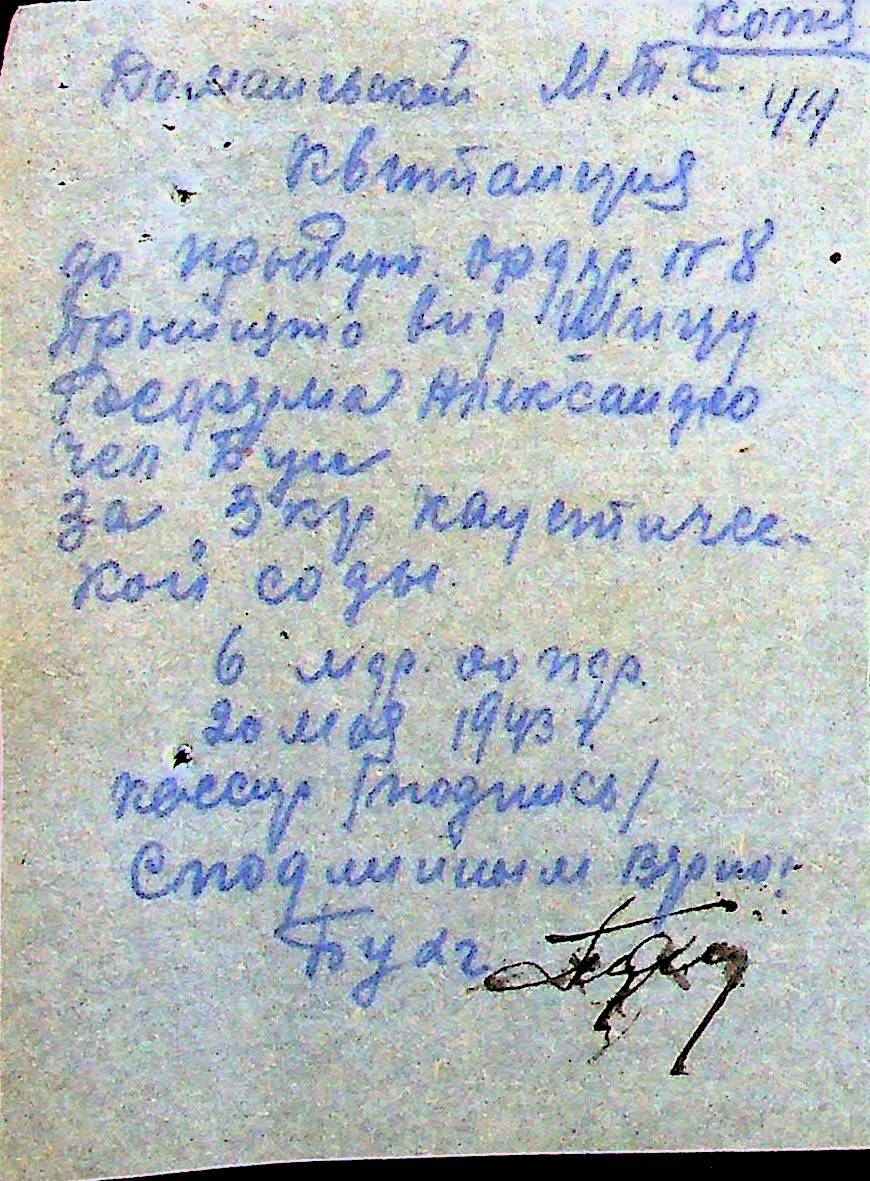 копія
Доманевской М.Т.С.
44
Квитанция
до прыбут. ордер. № 8
прынято вид Шицу
Александро
чел Буги
За 3 кгр каустичес-
кой соды.
6 мар. 
20 мая 1943 г.
кассир /подпись/
С подлинным верно:
Бухг.